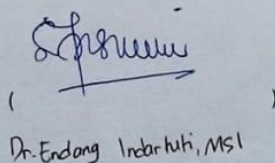 (                    )
Dr. Endang Indartuti, MSI